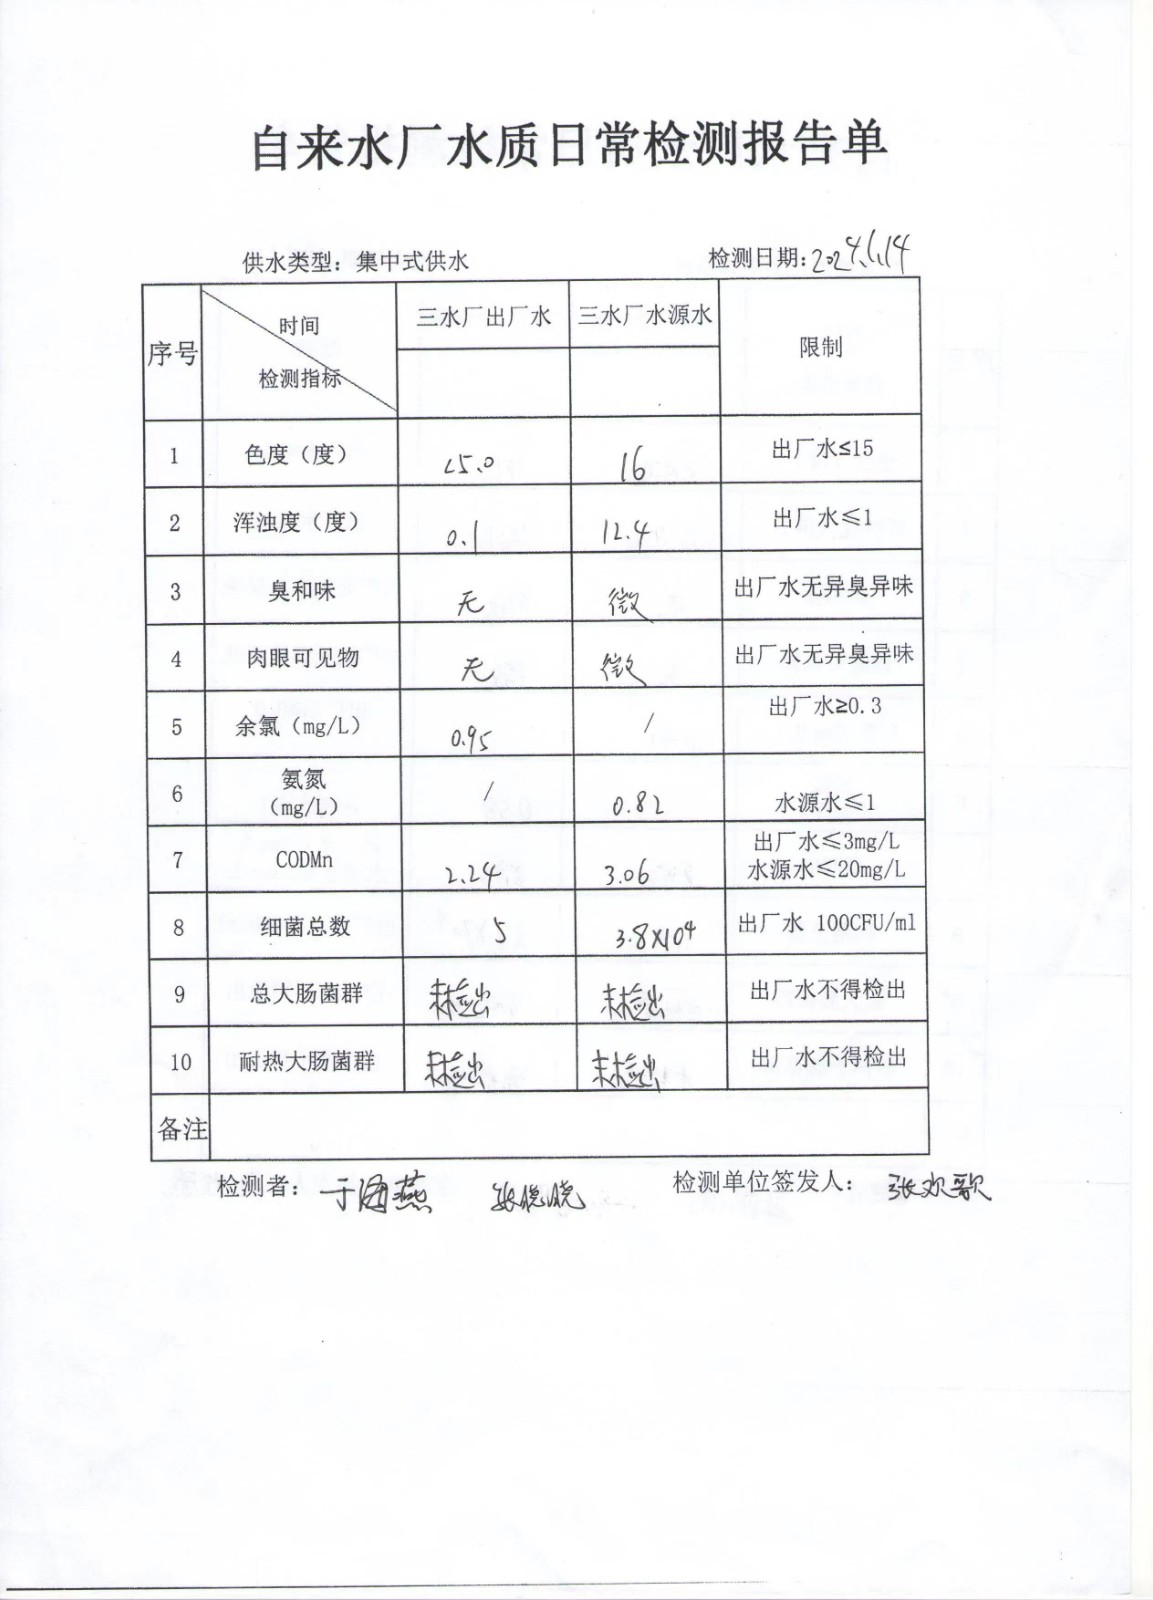 自来水厂水质日常检测报告单
供水类型：集中式供水 检测日期：2024.1.14
序号 时间 检测指标 三水厂出厂水 三水厂水源水 限制
1 色度（度） <5.0 16 出厂水≤15
2 浑浊度（度） 0.1 12.4 出厂水≤1
3 臭和味 无 微 出厂水无异臭异味
4 肉眼可见物 无 微 出厂水无异臭异味
5 余氯（mg/L） 0.95 / 出厂水≥0.3
6 氨氮（mg/L） / 0.82 水源水≤1
7 CODMn 2.24 3.06 出厂水≤3mg/L
水源水≤20mg/L
8 细菌总数 5 3.8×10⁴ 出厂水 100CFU/ml
9 总大肠菌群 未检出 未检出 出厂水不得检出
10 耐热大肠菌群 未检出 未检出 出厂水不得检出
备注
检测者：于海燕 张晓晓 检测单位签发人：张欢歌